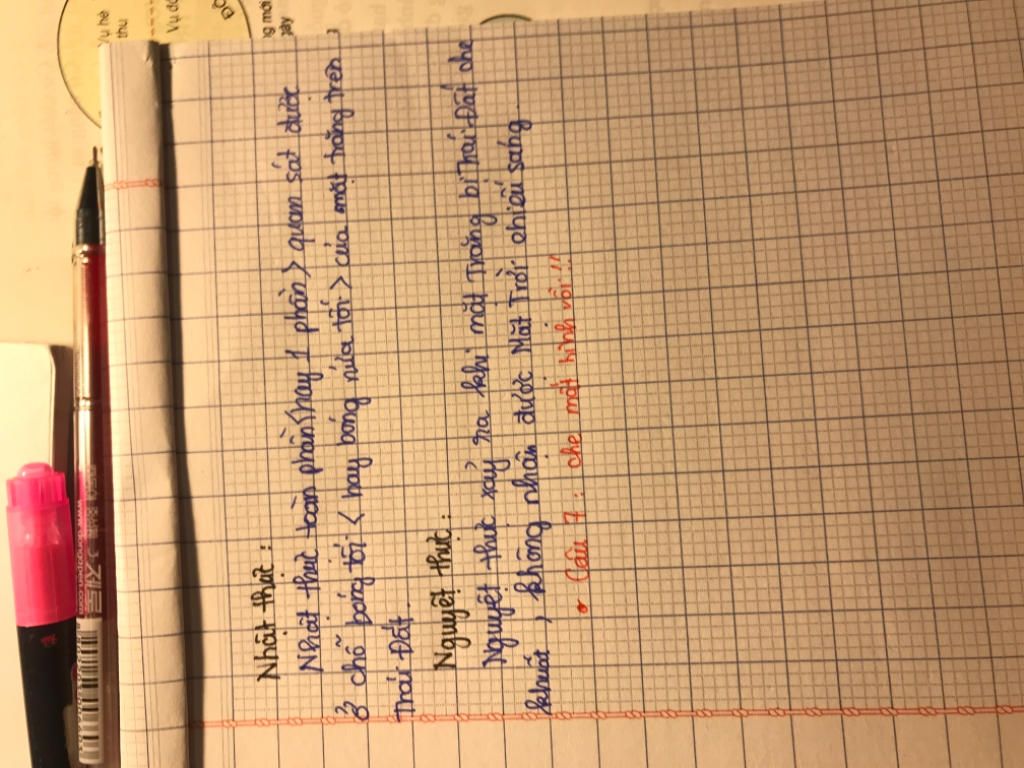 Nhật thực :
Nhật thực toàn phần (hay 1 phần > quan sát được
ở chỗ bóng tối < hay bóng nửa tối > của mặt trăng trên
Thái Đất.
Nguyệt thực :
Nguyệt thực xảy ra khi mặt Trăng bị Thái Đất che
khuất, không nhận được Mặt Trời chiếu sáng.
• Câu 7 : che mất hình vôi !!
Vụ hè
thu
g mới
gày